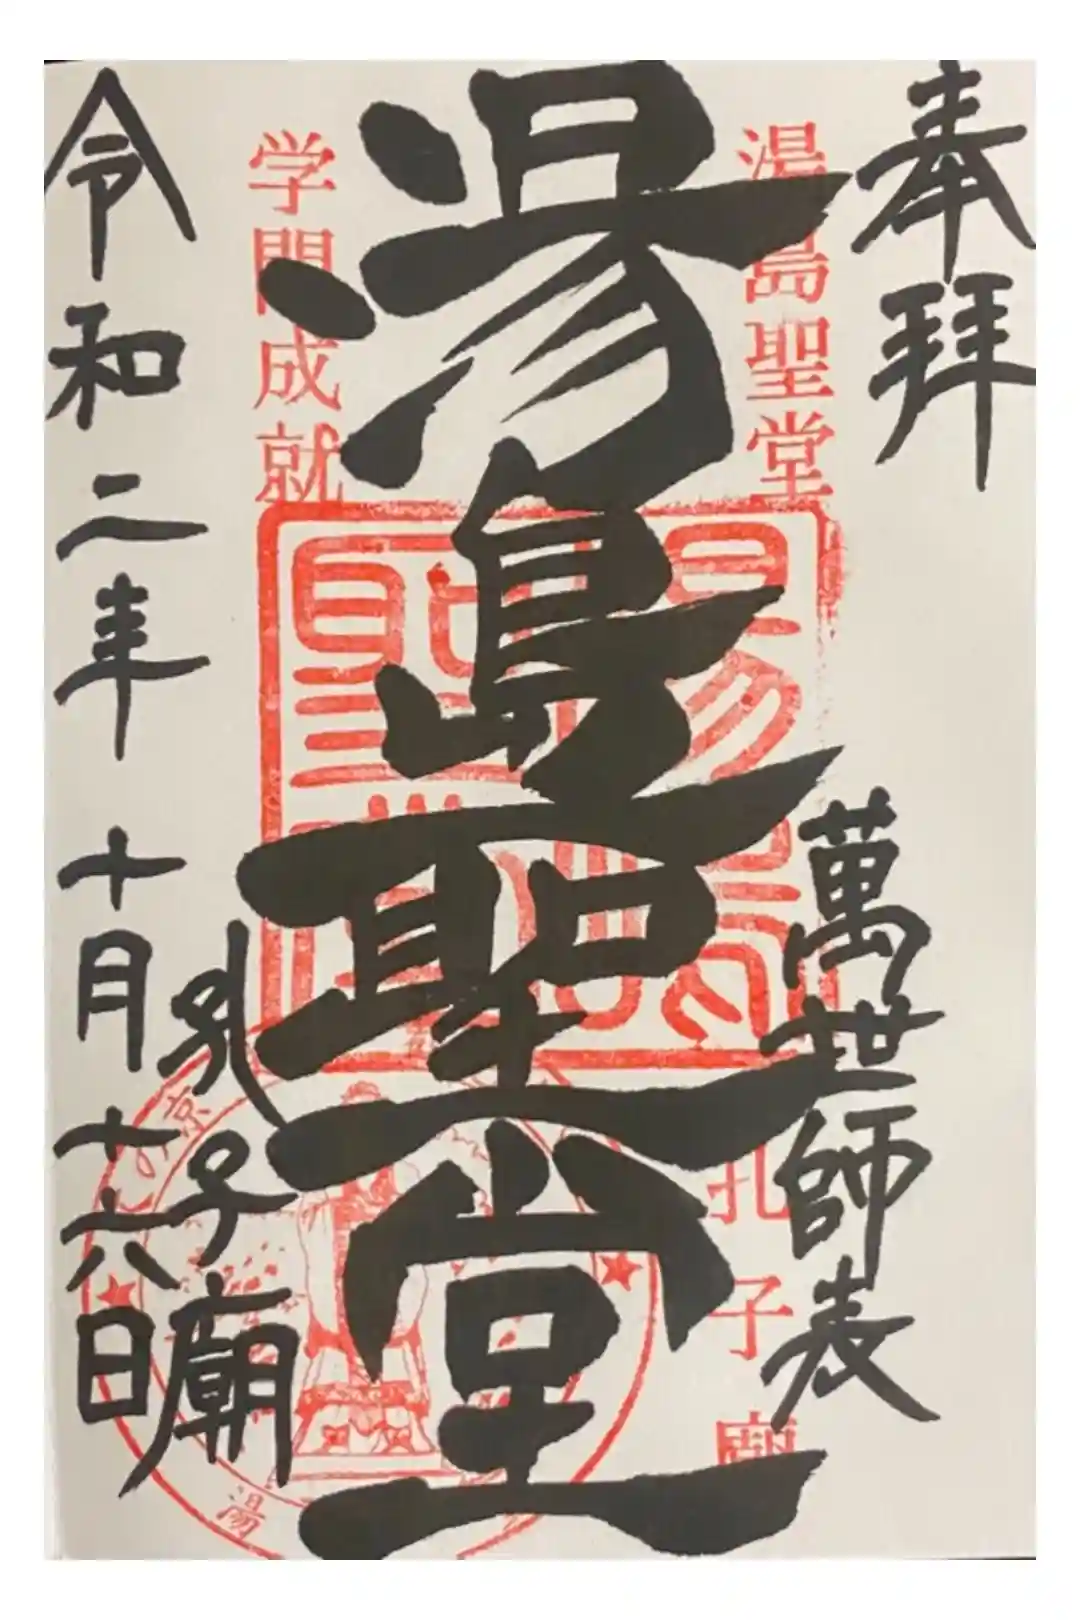 奉拝
萬世師表
湯島聖堂
孔子廟
湯島聖堂
学問成就
孔子廟
令和二年十月十六日
京
湯